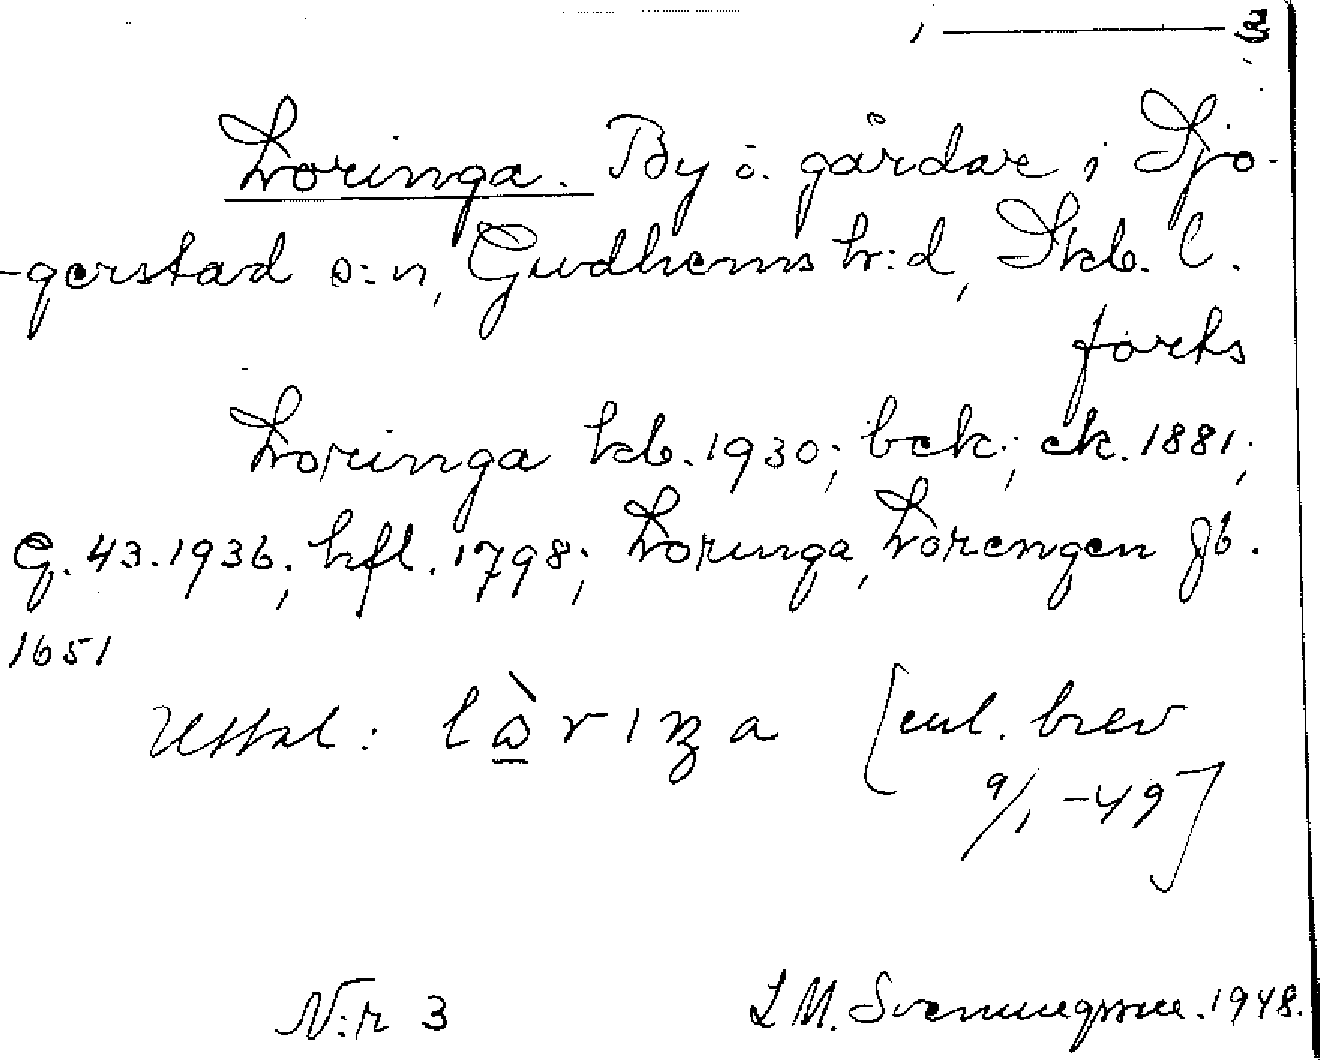 Loringa. By o. gårdar i Sjo-
-gerstad s:n, Gudhems h:d, Skb. l.
forts
Loringa kb. 1930; bek; ek. 1881;
G. 43. 1936; hfl. 1798; Loringa, Lorengen Jb.
1651
Uttal: [enl. brev
9/1 -49]
N:r 3 L M. Svenungsson. 1948.